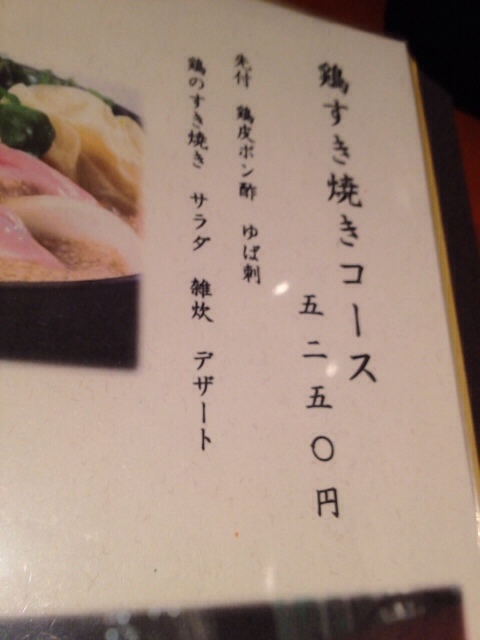 鶏すき焼きコース
五二五〇円
先付 鶏皮ポン酢 ゆば刺
鶏のすき焼き サラダ 雑炊 デザート